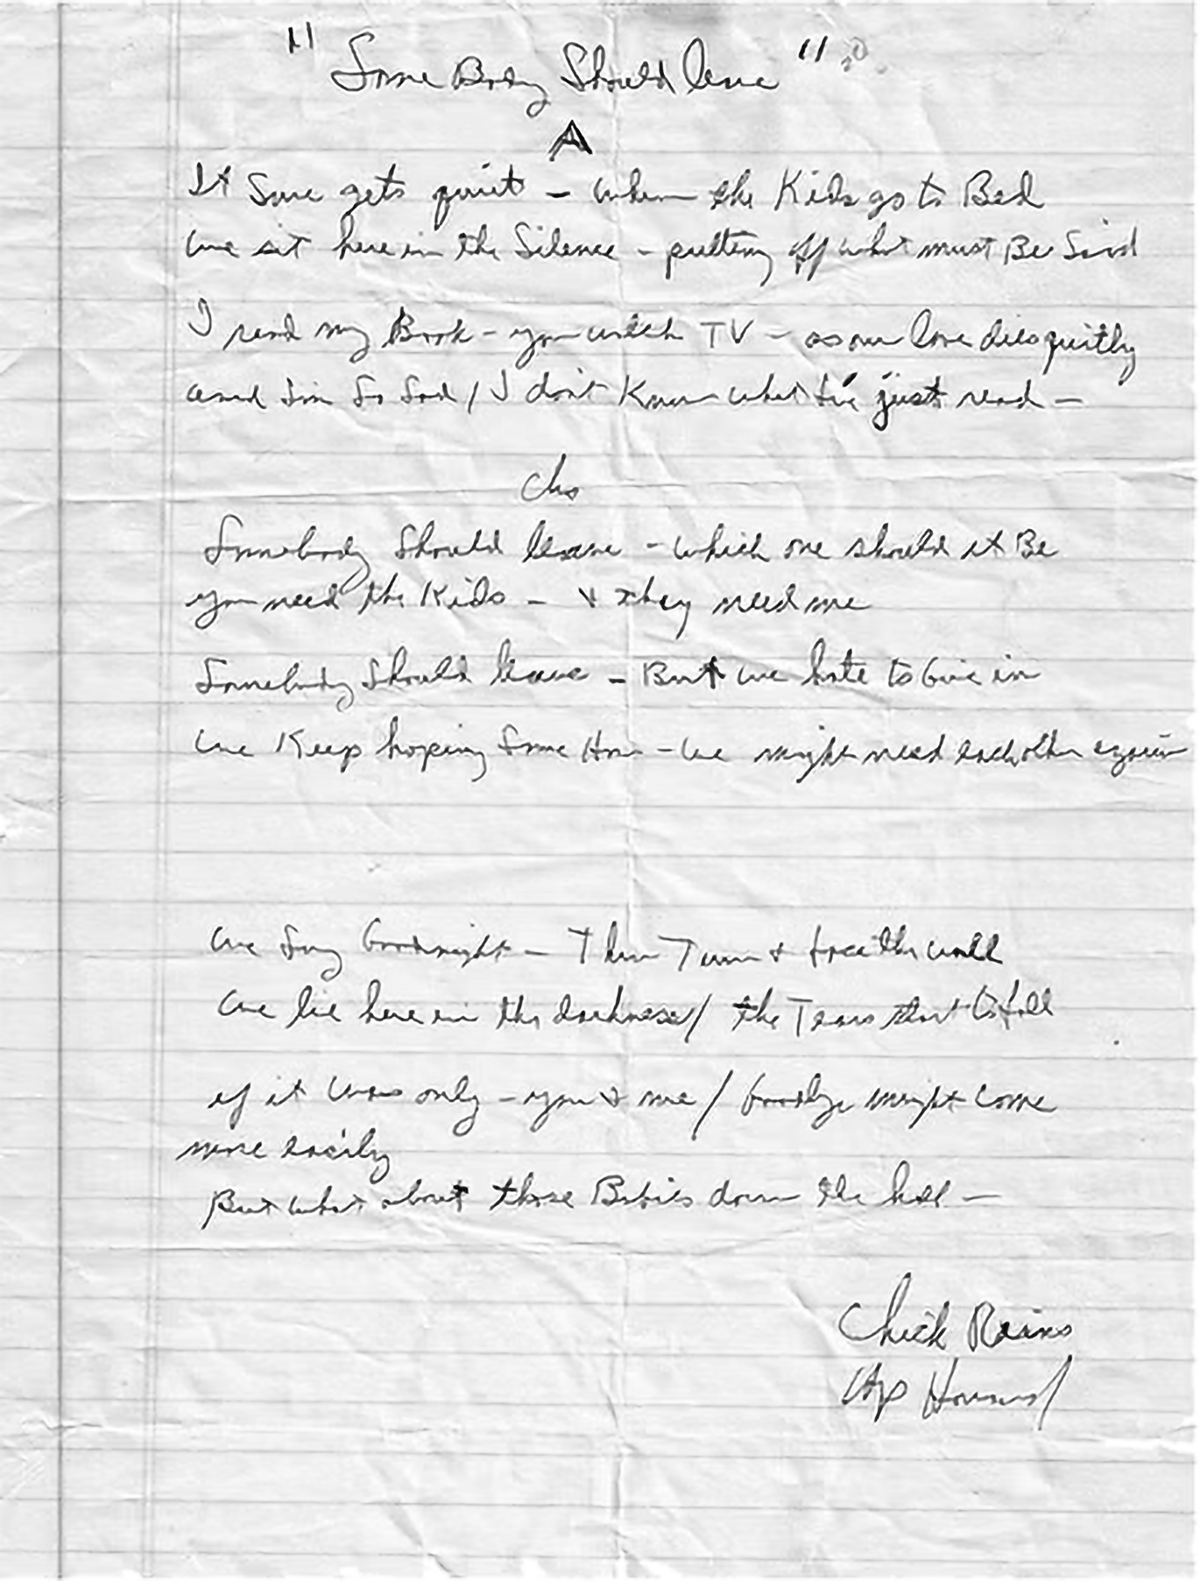 "Some Body Should leave"
A
It Sure gets quiet - when the Kids go to Bed
we sit here in the Silence - putting off what must Be Said
I read my Book - you watch TV - as our love dies quietly
and I'm So Sad / I don't Know what I've just read -
Chs
Somebody Should leave - which one should it Be
you need the Kids - & they need me
Somebody Should leave - But we hate to Give in
we Keep hoping Some How - we might need each other again
we Say Goodnight - Then Turn & face the wall
we lie here in the darkness / the Tears start to fall
if it was only - you & me / Goodbye might come
more easily
But what about those Babies down the hall -
Chick Rains
Harlan Howard